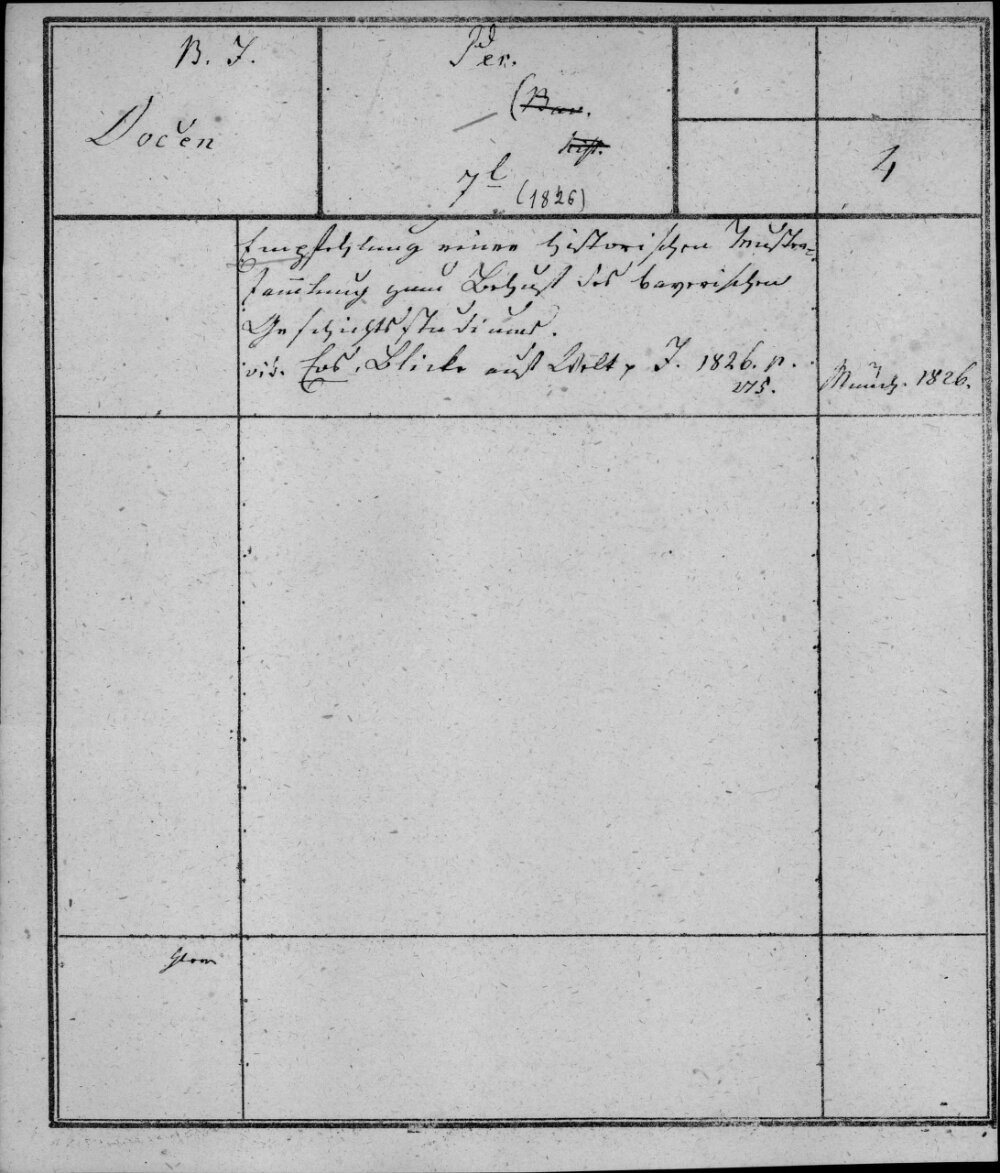 B. J.
Docen
Per.
(Bav.
hist.
7l (1826)
4
Empfehlung einer historischen Muster-
sammlung zum Behuf des bayerischen
Geschichtsstudiums.
vid. Eos, Blicke auf Welt J. 1826. p.
175.
Münch. 1826.